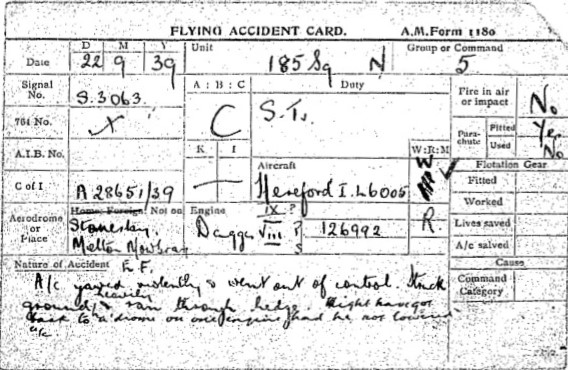 FLYING ACCIDENT CARD. A.M. Form 1180
Date D 22 M 9 Y 39 Unit 185 Sq N Group or Command 5
Signal No. S.3063. A : B : C C Duty S.T. Fire in air or impact No
761 No. X Parachute Fitted Yes
Used No
A.I.B. No. K I W:R:M
C of I A 28651/39 Aircraft Hereford I. L6005 W Flotation Gear
Fitted
Worked
Aerodrome or Place Home; Foreign; Not on Engine IX ? R. Lives saved
Stonesby Dagger VIII P 126992
Melton Mowbray S A/c salved
Nature of Accident E.F. Cause
A/c yawed violently & went out of control. Struck Command Category
ground heavily & ran through hedge. Might have got
back to a'drome on one engine had he not lowered
u/c